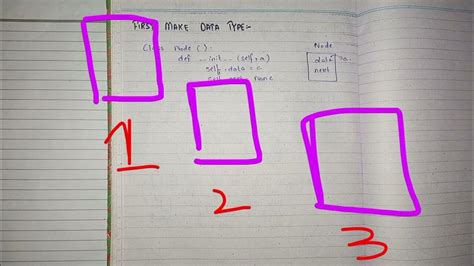 FIRST MAKE DATA TYPE:-
class Node ():
Node
def __init__ (self, a)
data
self.data = a
next
none
1
2
3